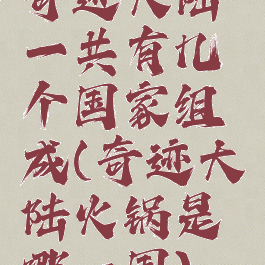 奇迹大陆
一共有几
个国家组
成(奇迹大
陆火锅是
哪一国)